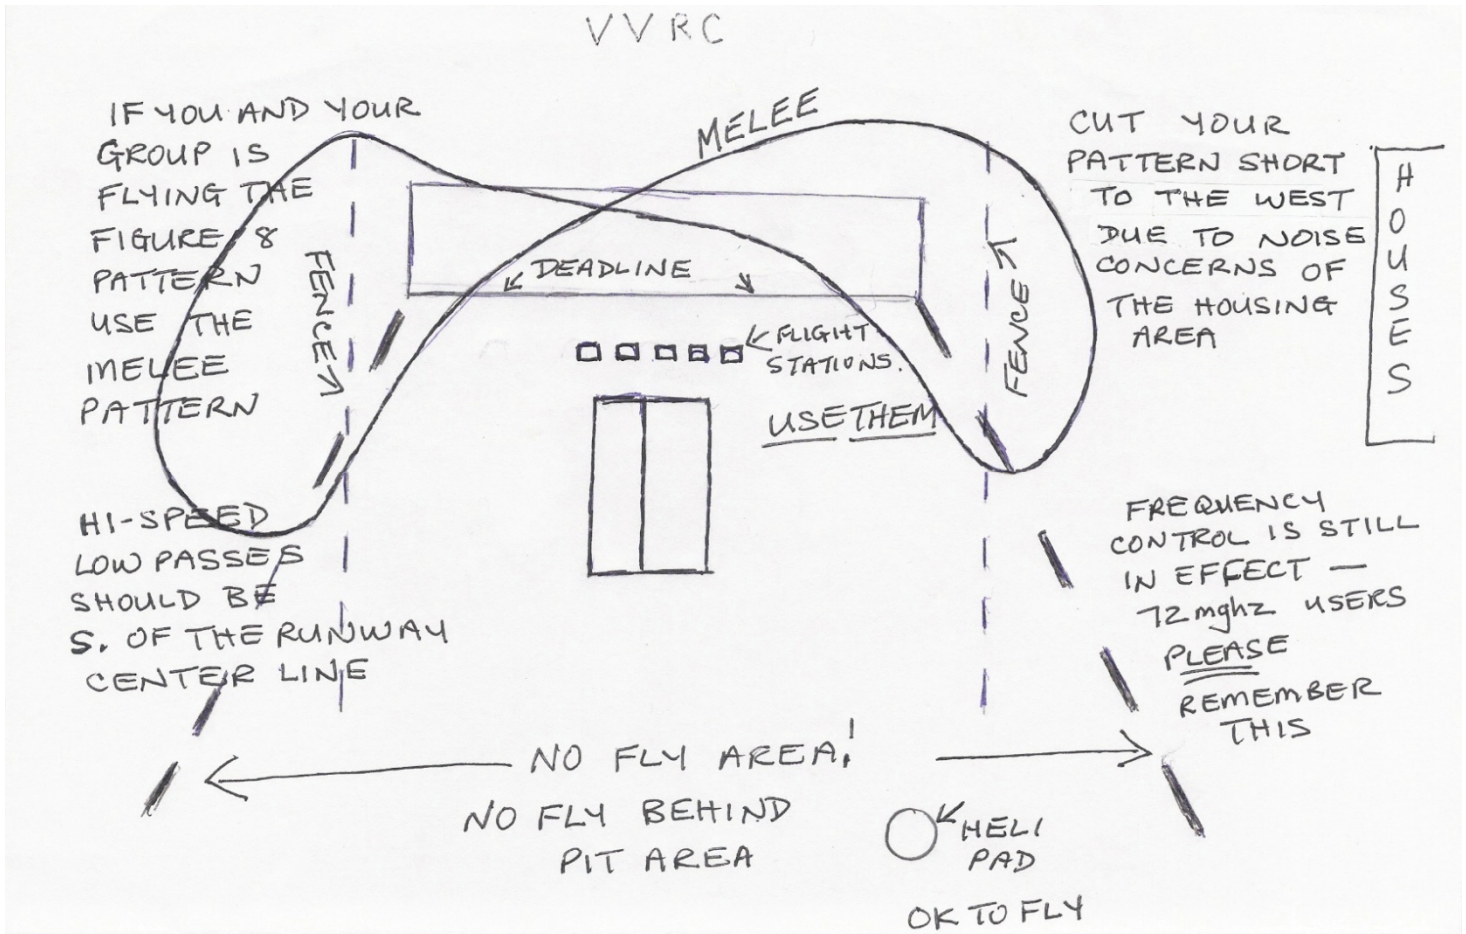 VVRC
IF YOU AND YOUR
GROUP IS
FLYING THE
FIGURE 8
PATTERN
USE THE
MELEE
PATTERN
MELEE
CUT YOUR
PATTERN SHORT
TO THE WEST
DUE TO NOISE
CONCERNS OF
THE HOUSING
AREA
HOUSES
FENCE
DEADLINE
FENCE
FLIGHT
STATIONS.
USE THEM
HI-SPEED
LOW PASSES
SHOULD BE
S. OF THE RUNWAY
CENTER LINE
FREQUENCY
CONTROL IS STILL
IN EFFECT —
72 mghz USERS
PLEASE
REMEMBER
THIS
NO FLY AREA!
NO FLY BEHIND
PIT AREA
HELI
PAD
OK TO FLY